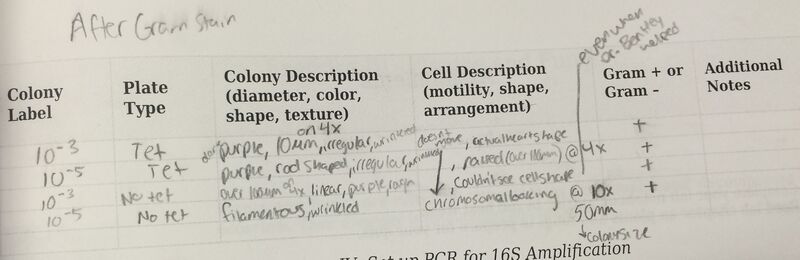 After Gram Stain
even when
Dr. Bentley
helped
Colony Label
Plate Type
Colony Description (diameter, color, shape, texture)
Cell Description (motility, shape, arrangement)
Gram + or Gram -
Additional Notes
on 4x
10-3 Tet dark purple, 10um, irregular, wrinkled doesn't move, actual heart shape +
10-5 Tet purple, rod shaped, irregular, wrinkled , raised (over 100um) @ 4x +
10-3 No tet over 100um @ 4x linear, purple, , couldn't see cell shape +
10-5 No tet filamentous, wrinkled chromosomal @ 10x +
50mm
→ colony size
Set up PCR for 16S Amplification